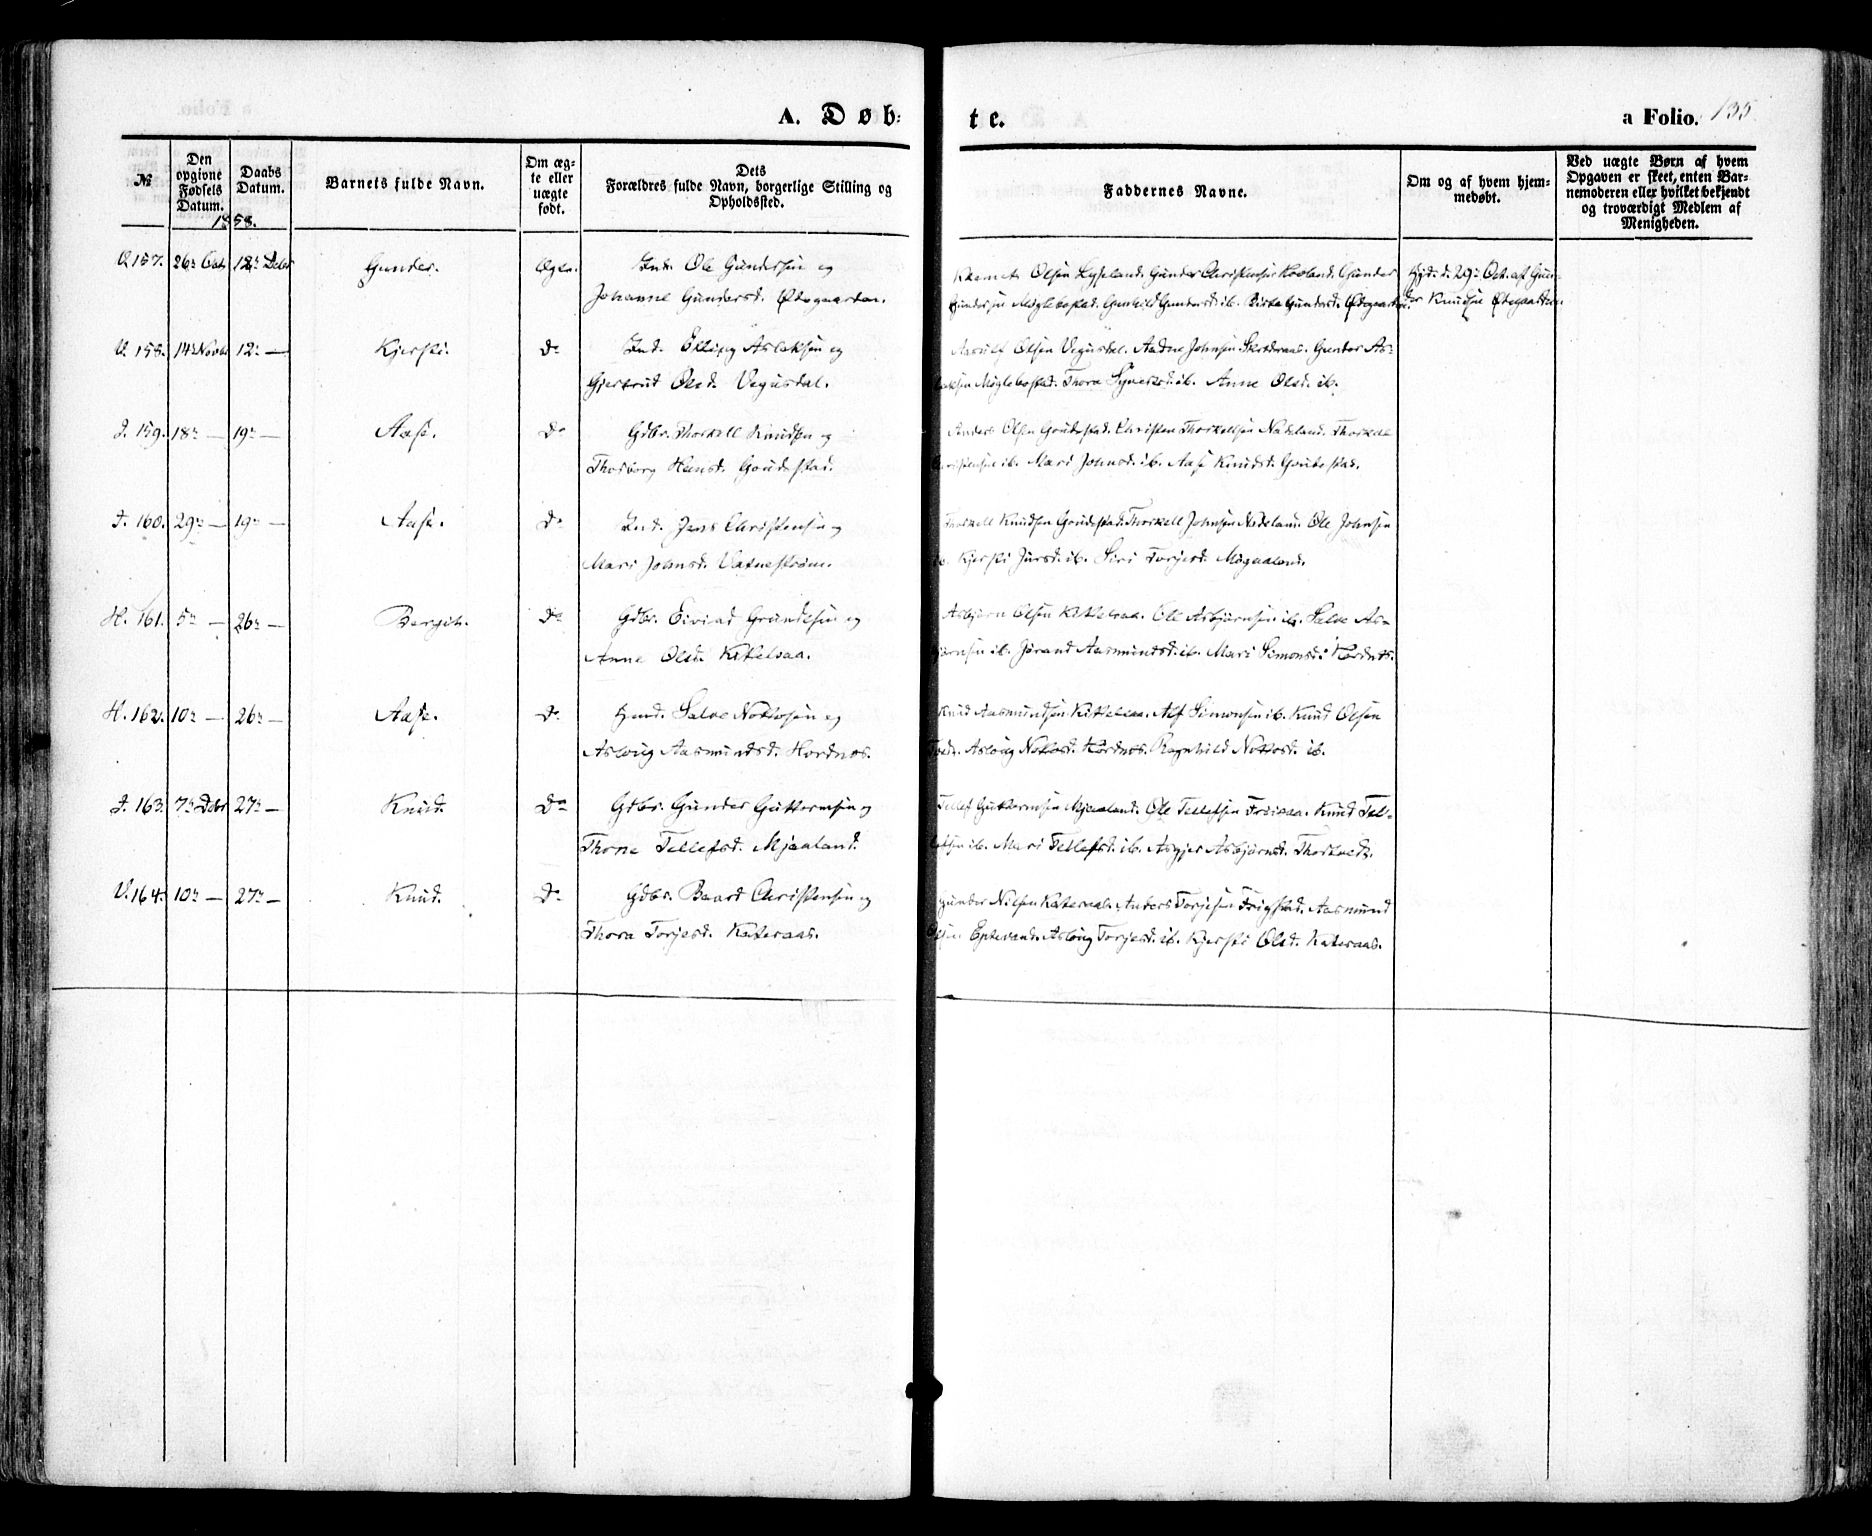 A. Døb-
te.
a Folio. 135
№
Den opgivne Fødsels Datum.
Daabs Datum.
Barnets fulde Navn.
Om ægte eller uægte født.
Dets Forældres fulde Navn, borgerlige Stilling og Opholdssted.
Faddernes Navne.
Om og af hvem hjemmedøbt.
Ved uægte Børn af hvem Opgaven er skeet, enten Barnemoderen eller hvilket bekjendt og troværdigt Medlem af Menigheden.
1858.
157. 26n Oct. 12n Debr Gunder. Ægte. Ind. Ole Gundersen og
Johanne Gundersd. Ødegaarden.
Olsen Lyseland. Gunder Christensen Hovland. Gunder
Gundersen Møglebostad. Gunhild Gundersd. ib. Birte Gundersd. Ødegaarden.
Hjd. d. 29n Oct. af Gun-
der Knudsen Ødegaarden.
V. 158. 14n Novbr 12n — Kjersti. Do Ind. Ellef Aslaksen og
Gjertrud Olsd. Vegusdal.
Olsen Vegusdal. Aadne Johnsen Skredderaas. Gunder As-
laksen Møglebostad. Thora ib. Anne Olsd. ib.
I. 159. 18n — 19n — Aase. Do Gdbr. Thorkell Knudsen og
Thorborg Hansd. Goudestad.
Anders Olsen Goudestad. Christen Thorkellsen Nateland. Thorkell
Christensen ib. Mari Johnsd. ib. Aase Knudsd. Goudestad.
I. 160. 29n — 19n — Aase. Do Ind. Jens Christensen og
Mari Johnsd. Vatnestrøm.
Thorkell Knudsen Goudestad. Thorkell Johnsen Ole Johnsen
ib. Kjersti ib. Siri Torjesd.
H. 161. 5n — 26n — Bergit. Do Gdbr. Eivind Grundesen og
Anne Olsd. Kittelsaa.
Asbjørn Olsen Kittelsaa. Ole Asbjørnsen ib. Salve As-
bjørnsen ib. Jørand Aasmundsd. ib. Mari Simonsd. Hordnes.
H. 162. 10n — 26n — Aase. Do Salve Nottosen og
Aslaug Aasmundsd. Hordnes.
Knud Aasmundsen Kittelsaa. Alf Simonsen ib. Knud Olsen
Aslaug Nottosd. Hordnes. Ragnhild Nottosd. ib.
I. 163. 7n Debr 27n — Knud. Do Gdbr. Gunder Guttormsen og
Thone Tellefsd. Mjaaland.
Tellef Guttormsen Mjaaland. Ole Tellefsen Frøisaa. Knud Tel-
lefsen ib. Mari Tellefsd. ib. Asgjer Asbjørnsd.
V. 164. 10n — 27n — Knud. Do Gdbr. Baard Christensen og
Thora Torjesd. Kateraas.
Gunder Nilsen Kateraas. Anders Torjesen Frigstad. Aasmund
Olsen Eptevand. Aslaug Torjesd. ib. Kjersti Olsd. Kateraas.